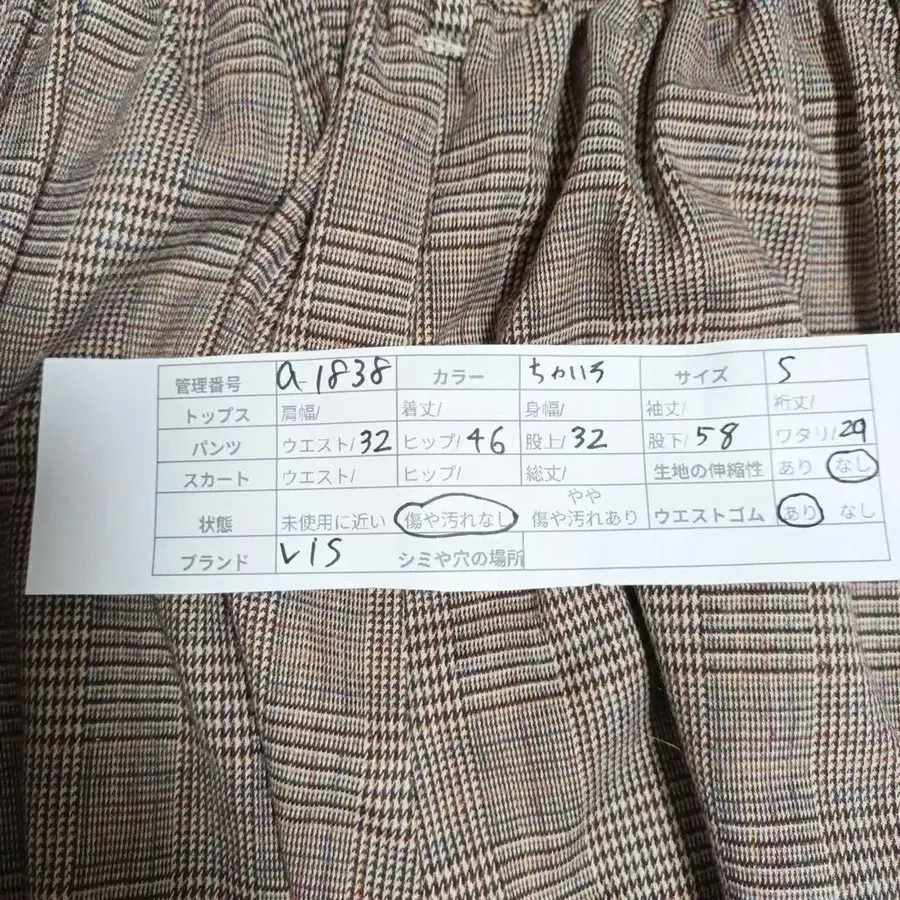 管理番号 a-1838 カラー ちゃいろ サイズ S
トップス 肩幅/ 着丈/ 身幅/ 袖丈/ 裄丈/
パンツ ウエスト/32 ヒップ/46 股上/32 股下/58 ワタリ/29
スカート ウエスト/ ヒップ/ 総丈/ 生地の伸縮性 あり なし
状態 未使用に近い 傷や汚れなし やや傷や汚れあり ウエストゴム あり なし
ブランド VIS シミや穴の場所